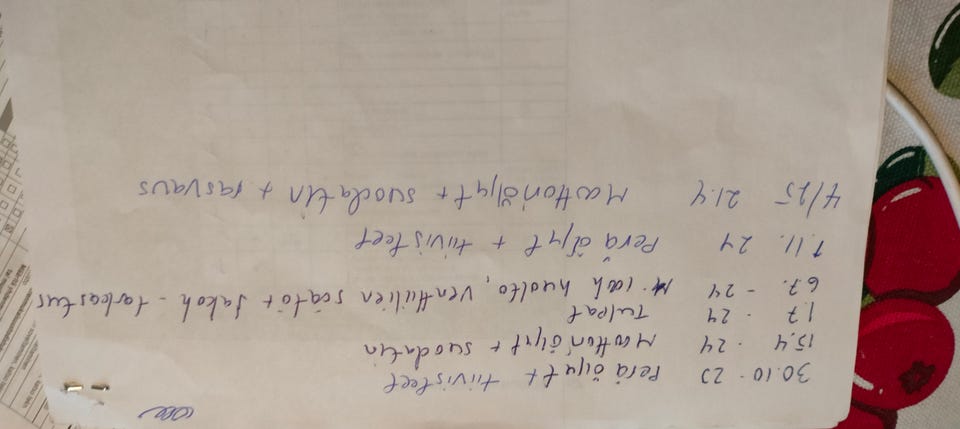 30.10 - 23 Perä öljyt + tiivisteet
15.4 - 24 Moottoriöljyt + suodatin
1.7 - 24 Tulpat
6.7. - 24 huolto, venttiilien säätö + Jakoh - tarkastus
1.11. 24 Perä öljyt + tiivisteet
4/25 21.4 Moottoriöljyt + suodatin + rasvaus